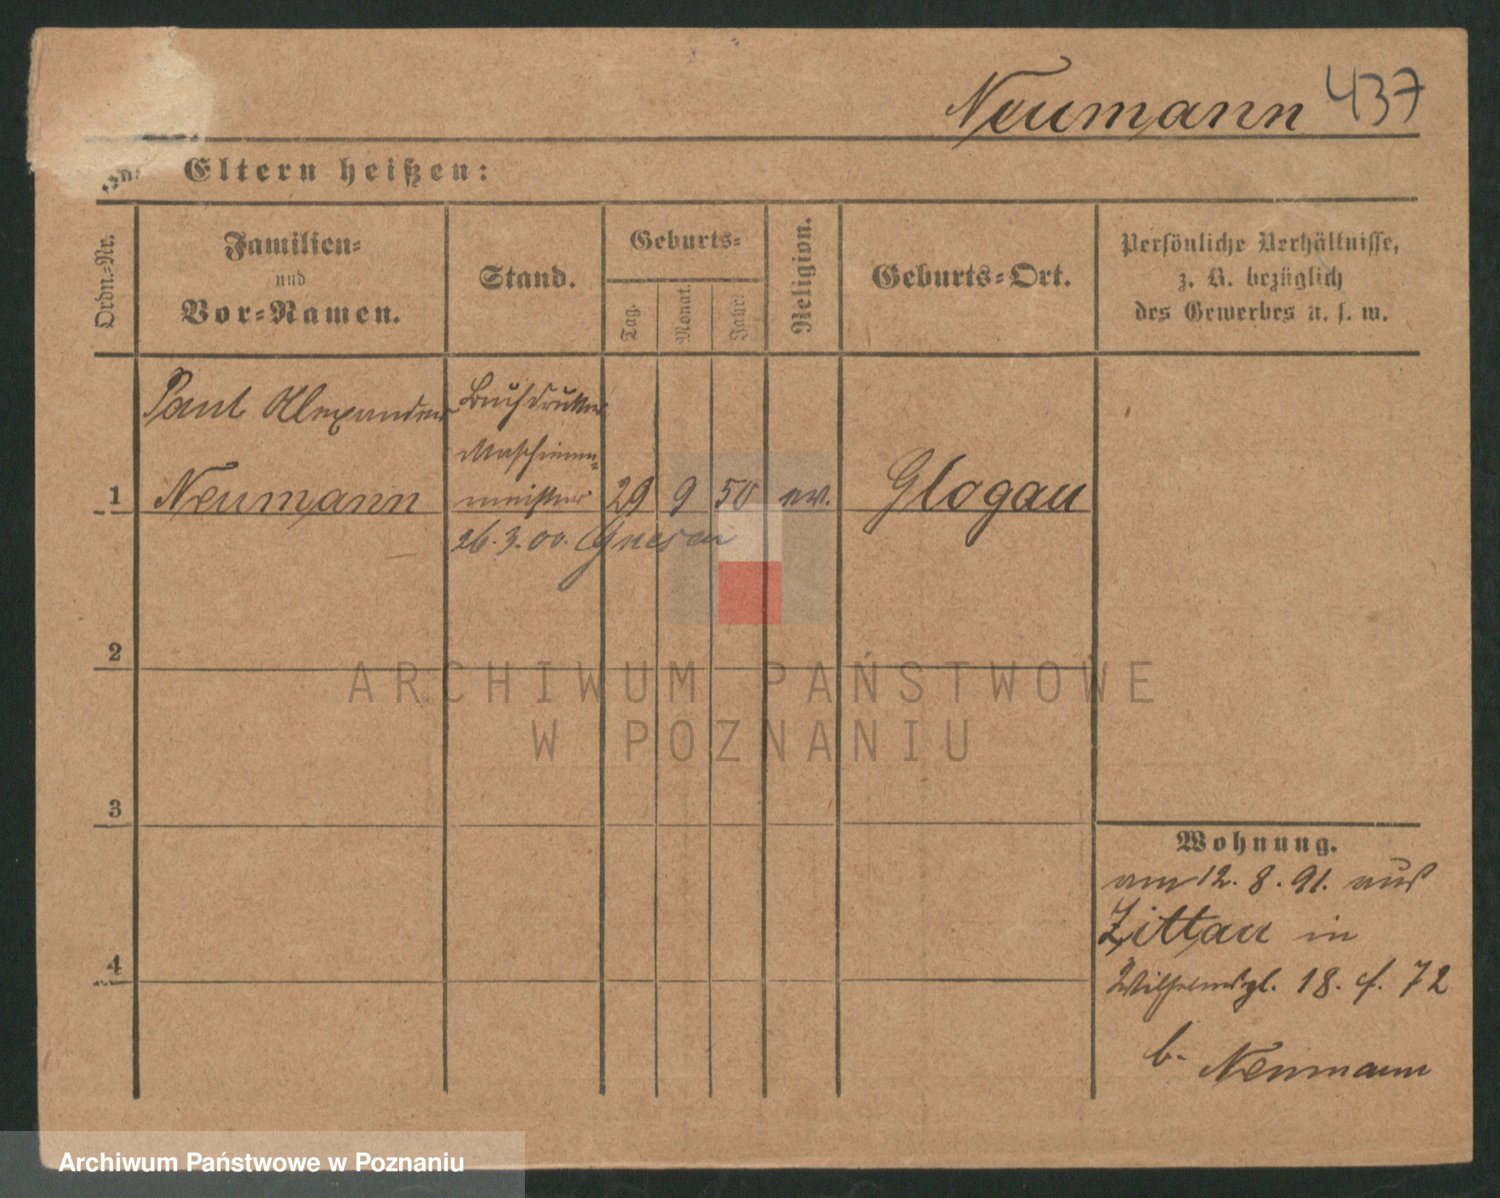 Neumann 437
Eltern heißen:
Ordn.-Nr.
Familien-
und
Vor-Namen.
Stand.
Geburts-
Tag.
Monat.
Jahr.
Religion.
Geburts-Ort.
Persönliche Verhältnisse,
z. B. bezüglich
des Gewerbes u. s. w.
Paul Alexander
Neumann
Buchdrucker
Maschinen-
meister
1
29 9 50 ev. Glogau
26.3.00. Gnesen
2
3
4
Wohnung.
am 12. 8. 91. aus
Zittau in
Wilhelmspl. 18. f. 72
b. Neumann
ARCHIWUM PAŃSTWOWE
W POZNANIU
Archiwum Państwowe w Poznaniu